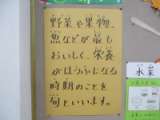 野菜や果物、
魚などが最も
おいしく、栄養
がほうふになる
時期のことを
旬といいます。